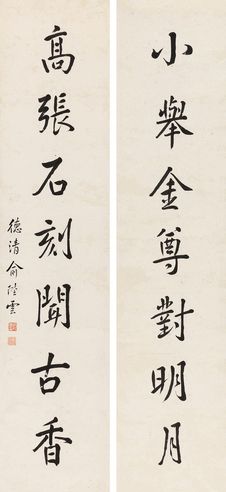 小舉金尊對明月
高張石刻聞古香
德清俞陛雲